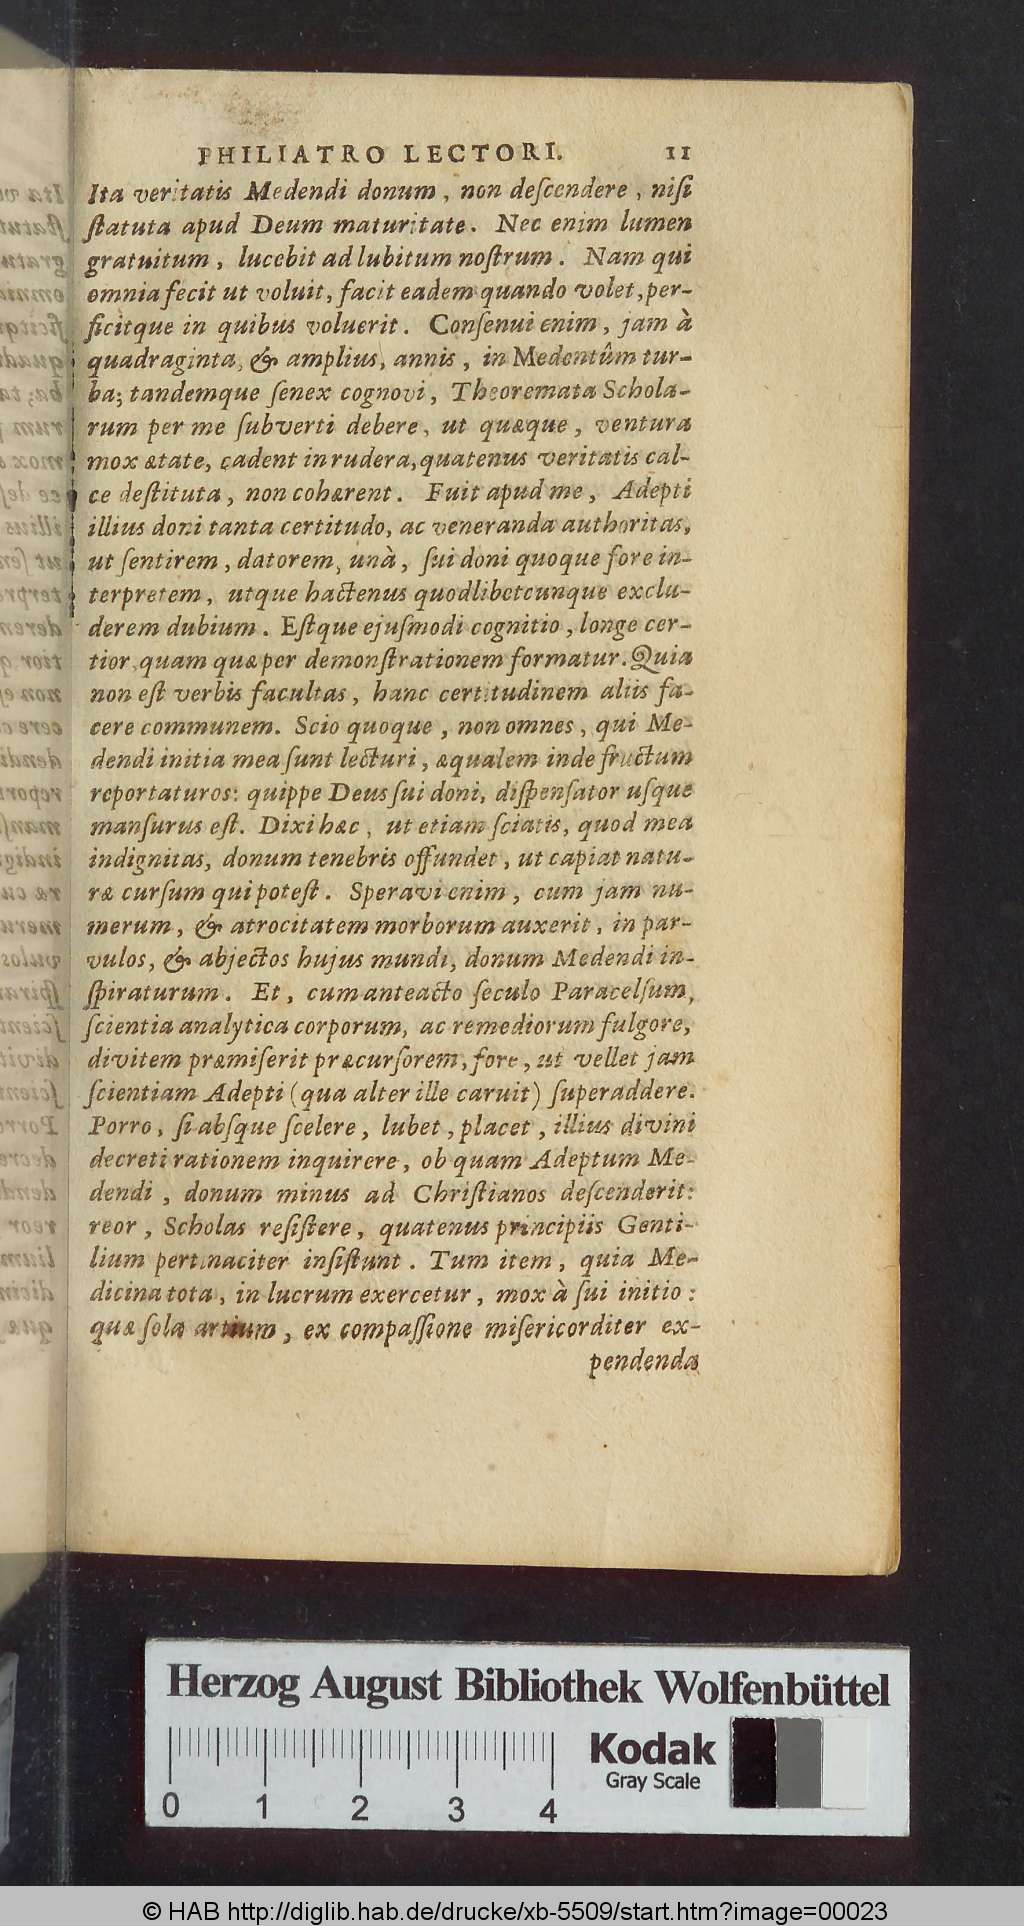 PHILIATRO LECTORI. 11
Ita veritatis Medendi donum, non deſcendere, niſi
ſtatuta apud Deum maturitate. Nec enim lumen
gratuitum, lucebit ad lubitum noſtrum. Nam qui
omnia fecit ut voluit, facit eadem quando volet, per-
ficitque in quibus voluerit. Conſenui enim, jam à
quadraginta, & amplius, annis, in Medentûm tur-
ba; tandemque ſenex cognovi, Theoremata Schola-
rum per me ſubverti debere, ut quæque, ventura
mox ætate, cadent in rudera, quatenus veritatis cal-
ce deſtituta, non cohærent. Fuit apud me, Adepti
illius doni tanta certitudo, ac veneranda authoritas,
ut ſentirem, datorem, unà, ſui doni quoque fore in-
terpretem, utque hactenus quodlibetcunque exclu-
derem dubium. Eſtque ejuſmodi cognitio, longe cer-
tior, quam quæ per demonſtrationem formatur. Quia
non eſt verbis facultas, hanc certitudinem aliis fa-
cere communem. Scio quoque, non omnes, qui Me-
dendi initia mea ſunt lecturi, æqualem inde fructum
reportaturos: quippe Deus ſui doni, diſpenſator uſque
manſurus eſt. Dixi hæc, ut etiam ſciatis, quod mea
indignitas, donum tenebris offundet, ut capiat natu-
ræ curſum qui poteſt. Speravi enim, cum jam nu-
merum, & atrocitatem morborum auxerit, in par-
vulos, & abjectos hujus mundi, donum Medendi in-
ſpiraturum. Et, cum anteacto ſeculo Paracelſum,
ſcientia analytica corporum, ac remediorum fulgore,
divitem præmiſerit præcurſorem, fore, ut vellet jam
ſcientiam Adepti (qua alter ille caruit) ſuperaddere.
Porro, ſi abſque ſcelere, lubet, placet, illius divini
decreti rationem inquirere, ob quam Adeptum Me-
dendi, donum minus ad Chriſtianos deſcenderit:
reor, Scholas reſiſtere, quatenus principiis Genti-
lium pertinaciter inſiſtunt. Tum item, quia Me-
dicina tota, in lucrum exercetur, mox à ſui initio:
quæ ſola artium, ex compaſſione miſericorditer ex-
pendenda
Herzog August Bibliothek Wolfenbüttel
Kodak
Gray Scale
0 1 2 3 4
© HAB http://diglib.hab.de/drucke/xb-5509/start.htm?image=00023